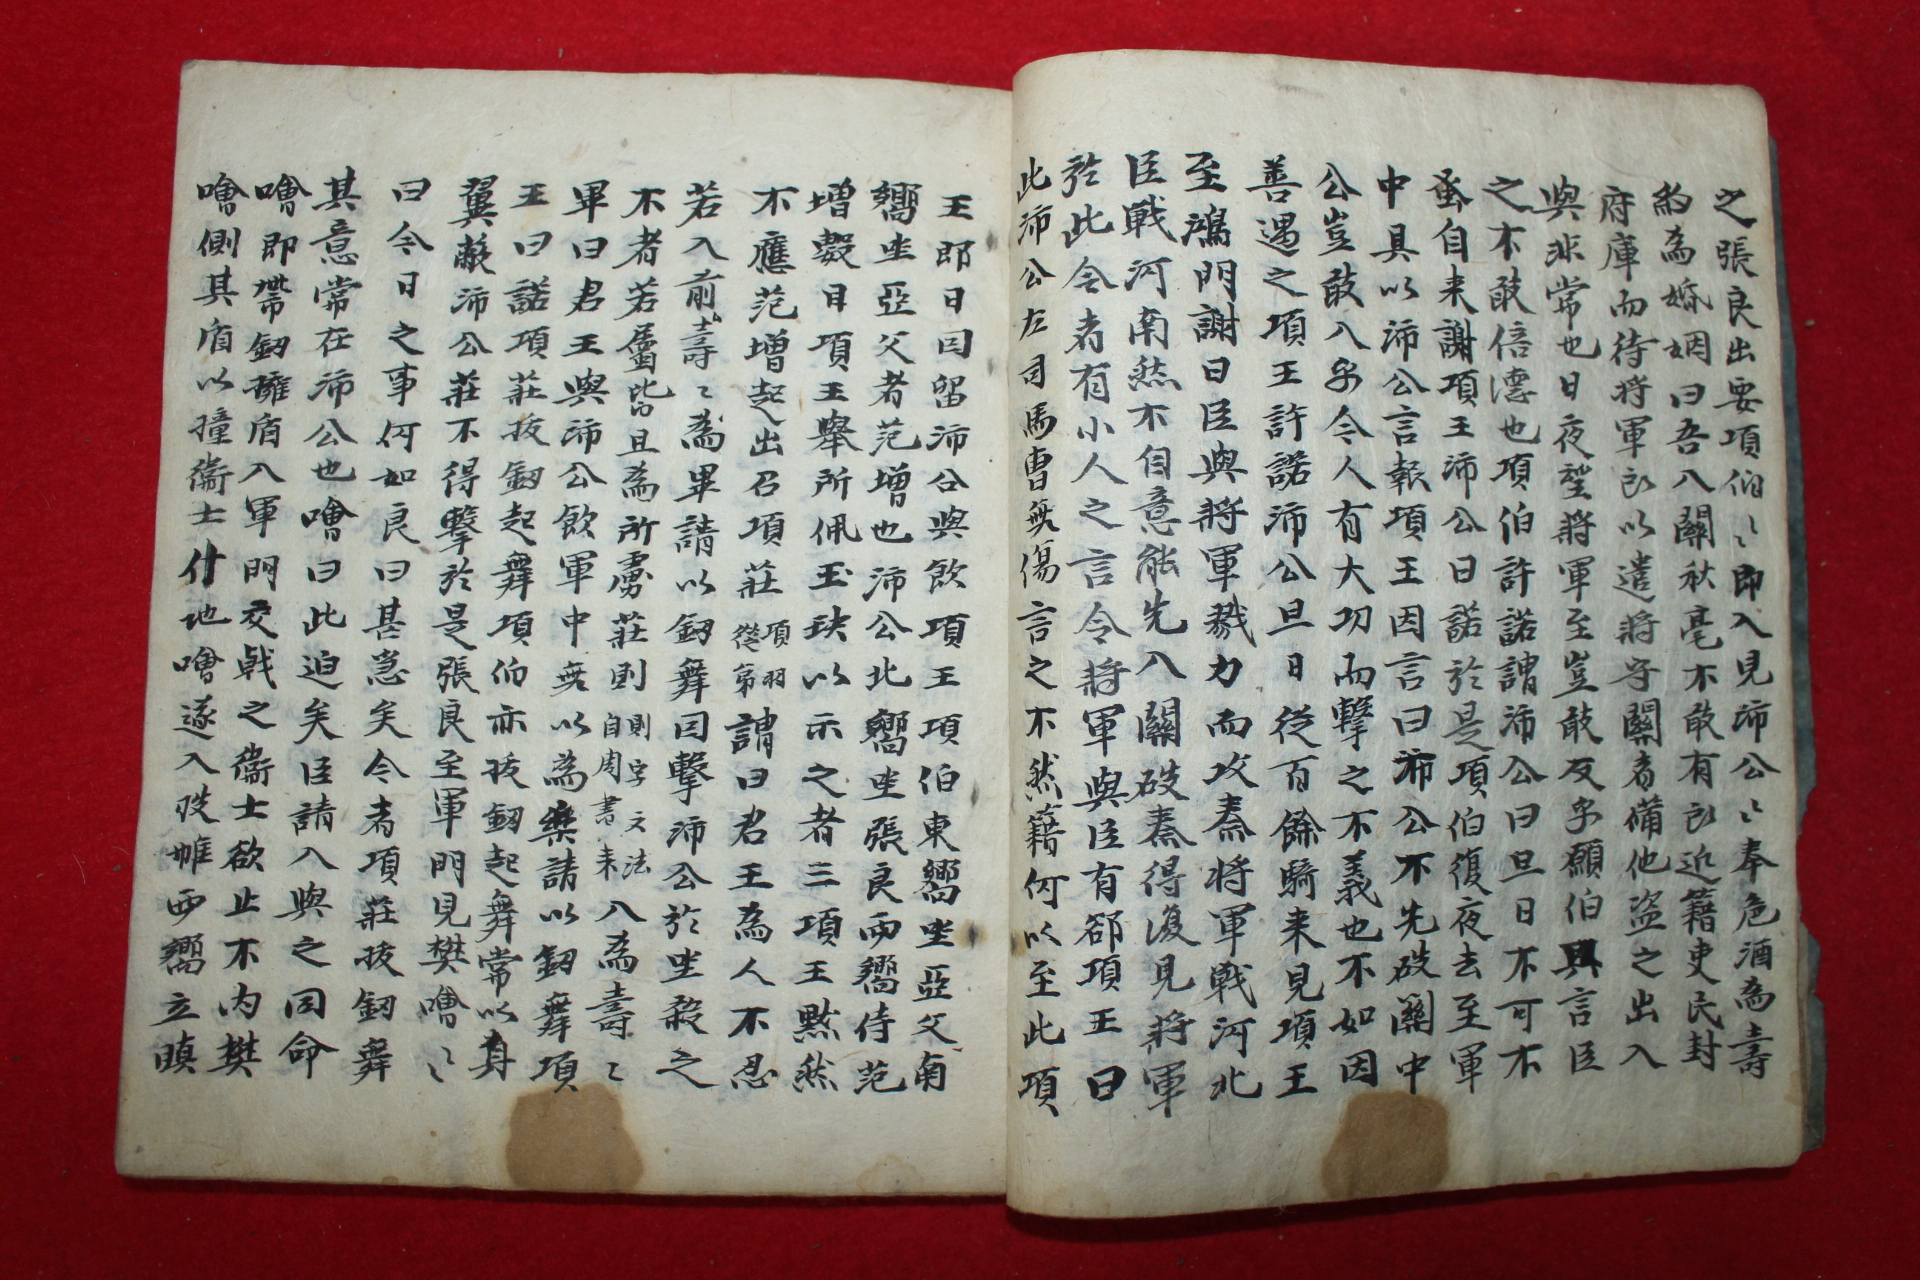 之張良出要項伯〻即入見沛公〻奉卮酒為壽
約為婚姻曰吾入關秋毫不敢有所近籍吏民封
府庫而待將軍所以遣將守關者備他盜之出入
與非常也日夜望將軍至豈敢反乎願伯具言臣
之不敢倍德也項伯許諾謂沛公曰旦日不可不
蚤自来謝項王沛公曰諾於是項伯復夜去至軍
中具以沛公言報項王因言曰沛公不先破關中
公豈敢入乎今人有大功而擊之不義也不如因
善遇之項王許諾沛公旦日從百餘騎来見項王
至鴻門謝曰臣與將軍戮力而攻秦將軍戰河北
臣戰河南然不自意能先入關破秦得復見將軍
於此今者有小人之言令將軍與臣有郤項王曰
此沛公左司馬曺無傷言之不然籍何以至此項
王即日因留沛公與飲項王項伯東嚮坐亞父南
嚮坐亞父者范增也沛公北嚮坐張良西嚮侍范
增數目項王舉所佩玉玦以示之者三項王默然
不應范增起出召項莊項羽從弟謂曰君王為人不忍
若入前壽〻為畢請以釼舞因擊沛公於坐殺之
不者若屬皆且為所虜莊則則字文法自周書来入為壽〻
畢曰君王與沛公飲軍中無以為樂請以釼舞項
王曰諾項莊拔釼起舞項伯亦拔釼起舞常以身
翼蔽沛公莊不得擊於是張良至軍門見樊噲〻
曰今日之事何如良曰甚急矣今者項莊拔釼舞
其意常在沛公也噲曰此迫矣臣請入與之同命
噲即帶釼擁盾入軍門交戟之衛士欲止不內樊
噲側其盾以撞衛士什地噲遂入披帷西嚮立瞋